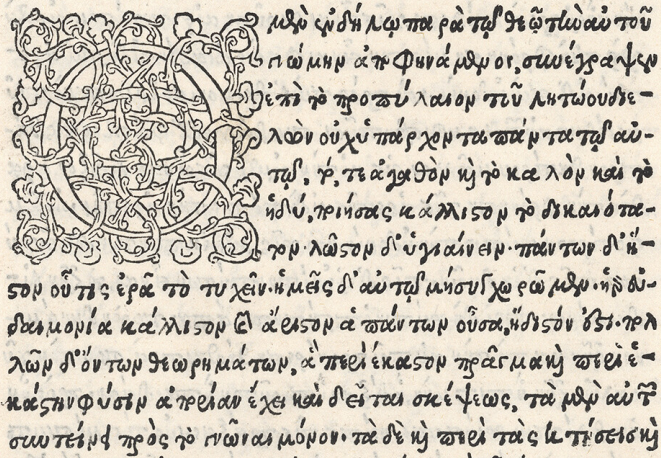 Ο μὲν ἐν δήλῳ παρὰ τῷ θεῷ τὴν αὑτοῦ
γνώμην ἀποφηνάμενος, συνέγραψεν
ἐπὶ τὸ προπύλαιον τοῦ λητώου διε-
λὼν οὐχ ὑπάρχοντα πάντα τῷ αὐ-
τῷ, τό, τε ἀγαθὸν καὶ τὸ καλὸν καὶ τὸ
ἡδύ, ποιήσας κάλλιστον τὸ δικαιότα-
τον· λῶστον δ' ὑγιαίνειν· πάντων δ' ἥ-
στον οὗ τις ἐρᾶ τὸ τυχεῖν· ἡμεῖς δ' αὐτῷ μὴ συγχωρῶμεν· ἡ γὰρ εὐ-
δαιμονία κάλλιστον καὶ ἄριστον ἁπάντων οὖσα, ἥδιστόν ἐστι· πολ
λῶν δ' ὄντων θεωρημάτων, ἃ περὶ ἕκαστον πρᾶγμα καὶ περὶ ἑ-
κάστην φύσιν ἀπορίαν ἔχει καὶ δεῖται σκέψεως, τὰ μὲν αὐτῶν
συντείνει πρὸς τὸ γνῶναι μόνον· τὰ δὲ καὶ περὶ τὰς κτήσεις καὶ